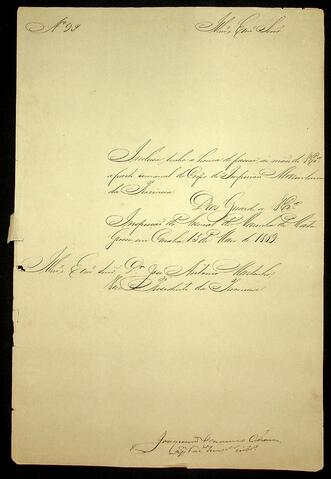 Nº 92
Illmº Exmº Snr
Incluso tenho a honra de passar as mãos de VExª
a parte semanal do Corpo de Imperiaes Marinheiros
da Provincia.
Deos Guarde a VExª
Inspecção do Arsenal de Marinha de Matto
Grosso em Cuiabá 13 de Maio de 1889
Illmº Exmº Snr Dr José Antonio
Presidente da Provincia
Joaquim